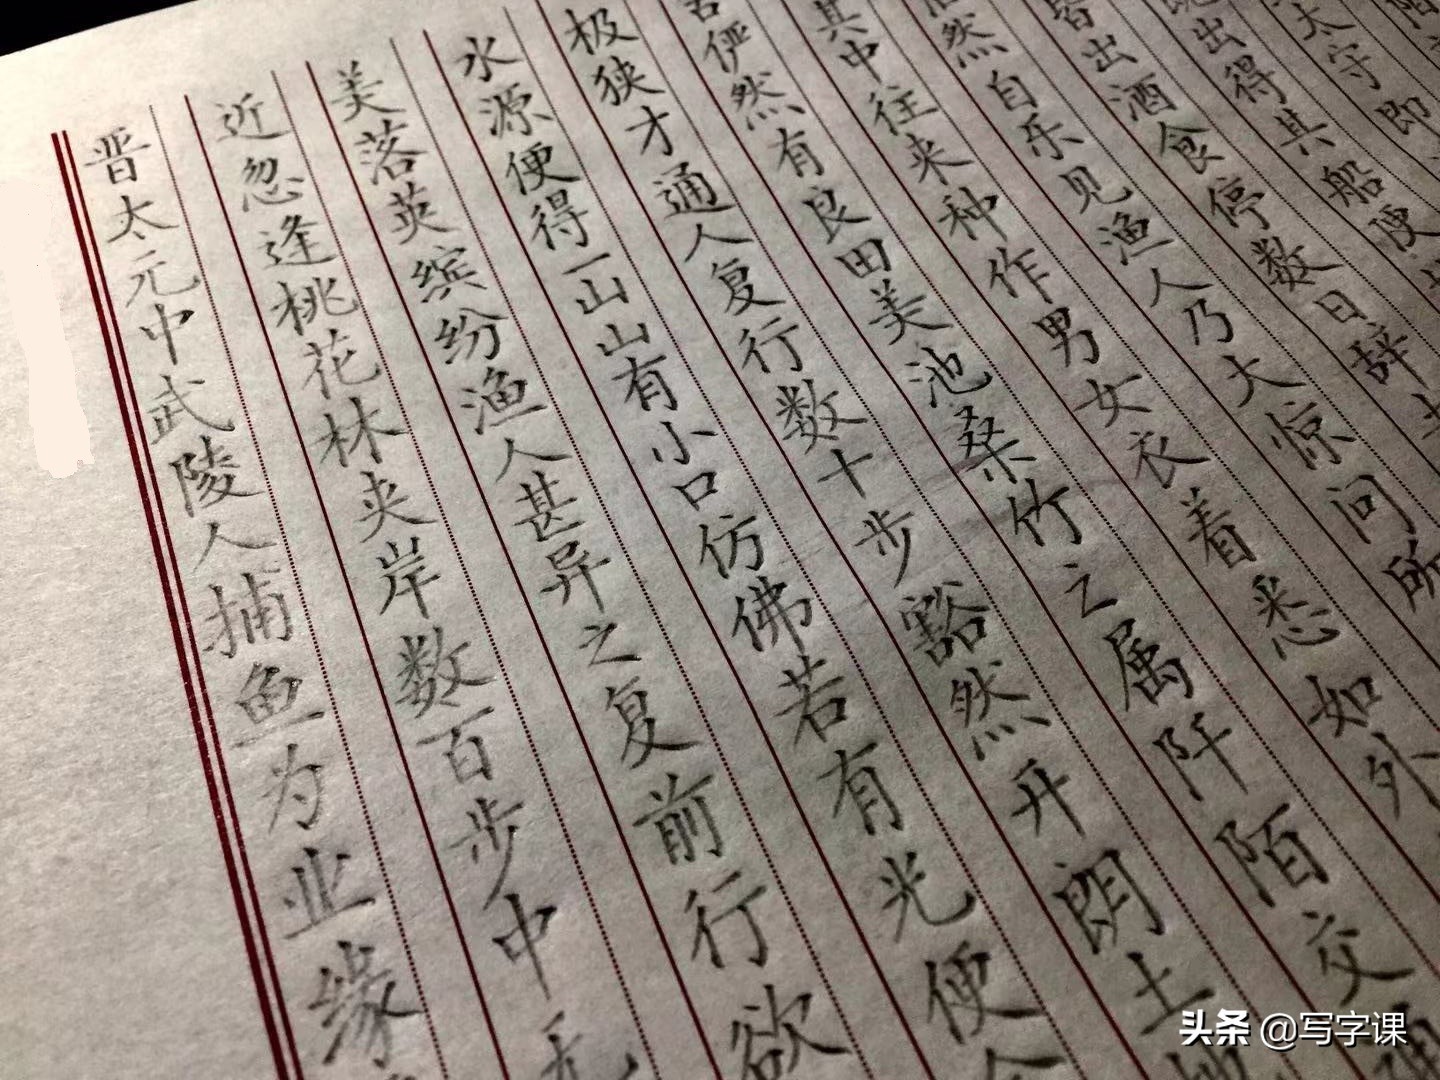 晋太元中武陵人捕鱼为业缘
近忽逢桃花林夹岸数百步中无
美落英缤纷渔人甚异之复前行欲
水源便得一山山有小口仿佛若有光便
极狭才通人复行数十步豁然开朗土地
舍俨然有良田美池桑竹之属阡陌交
其中往来种作男女衣着悉如外
然自乐见渔人乃大惊问所
皆出酒食停数日辞
出得其船便
太守即
头条 @写字课